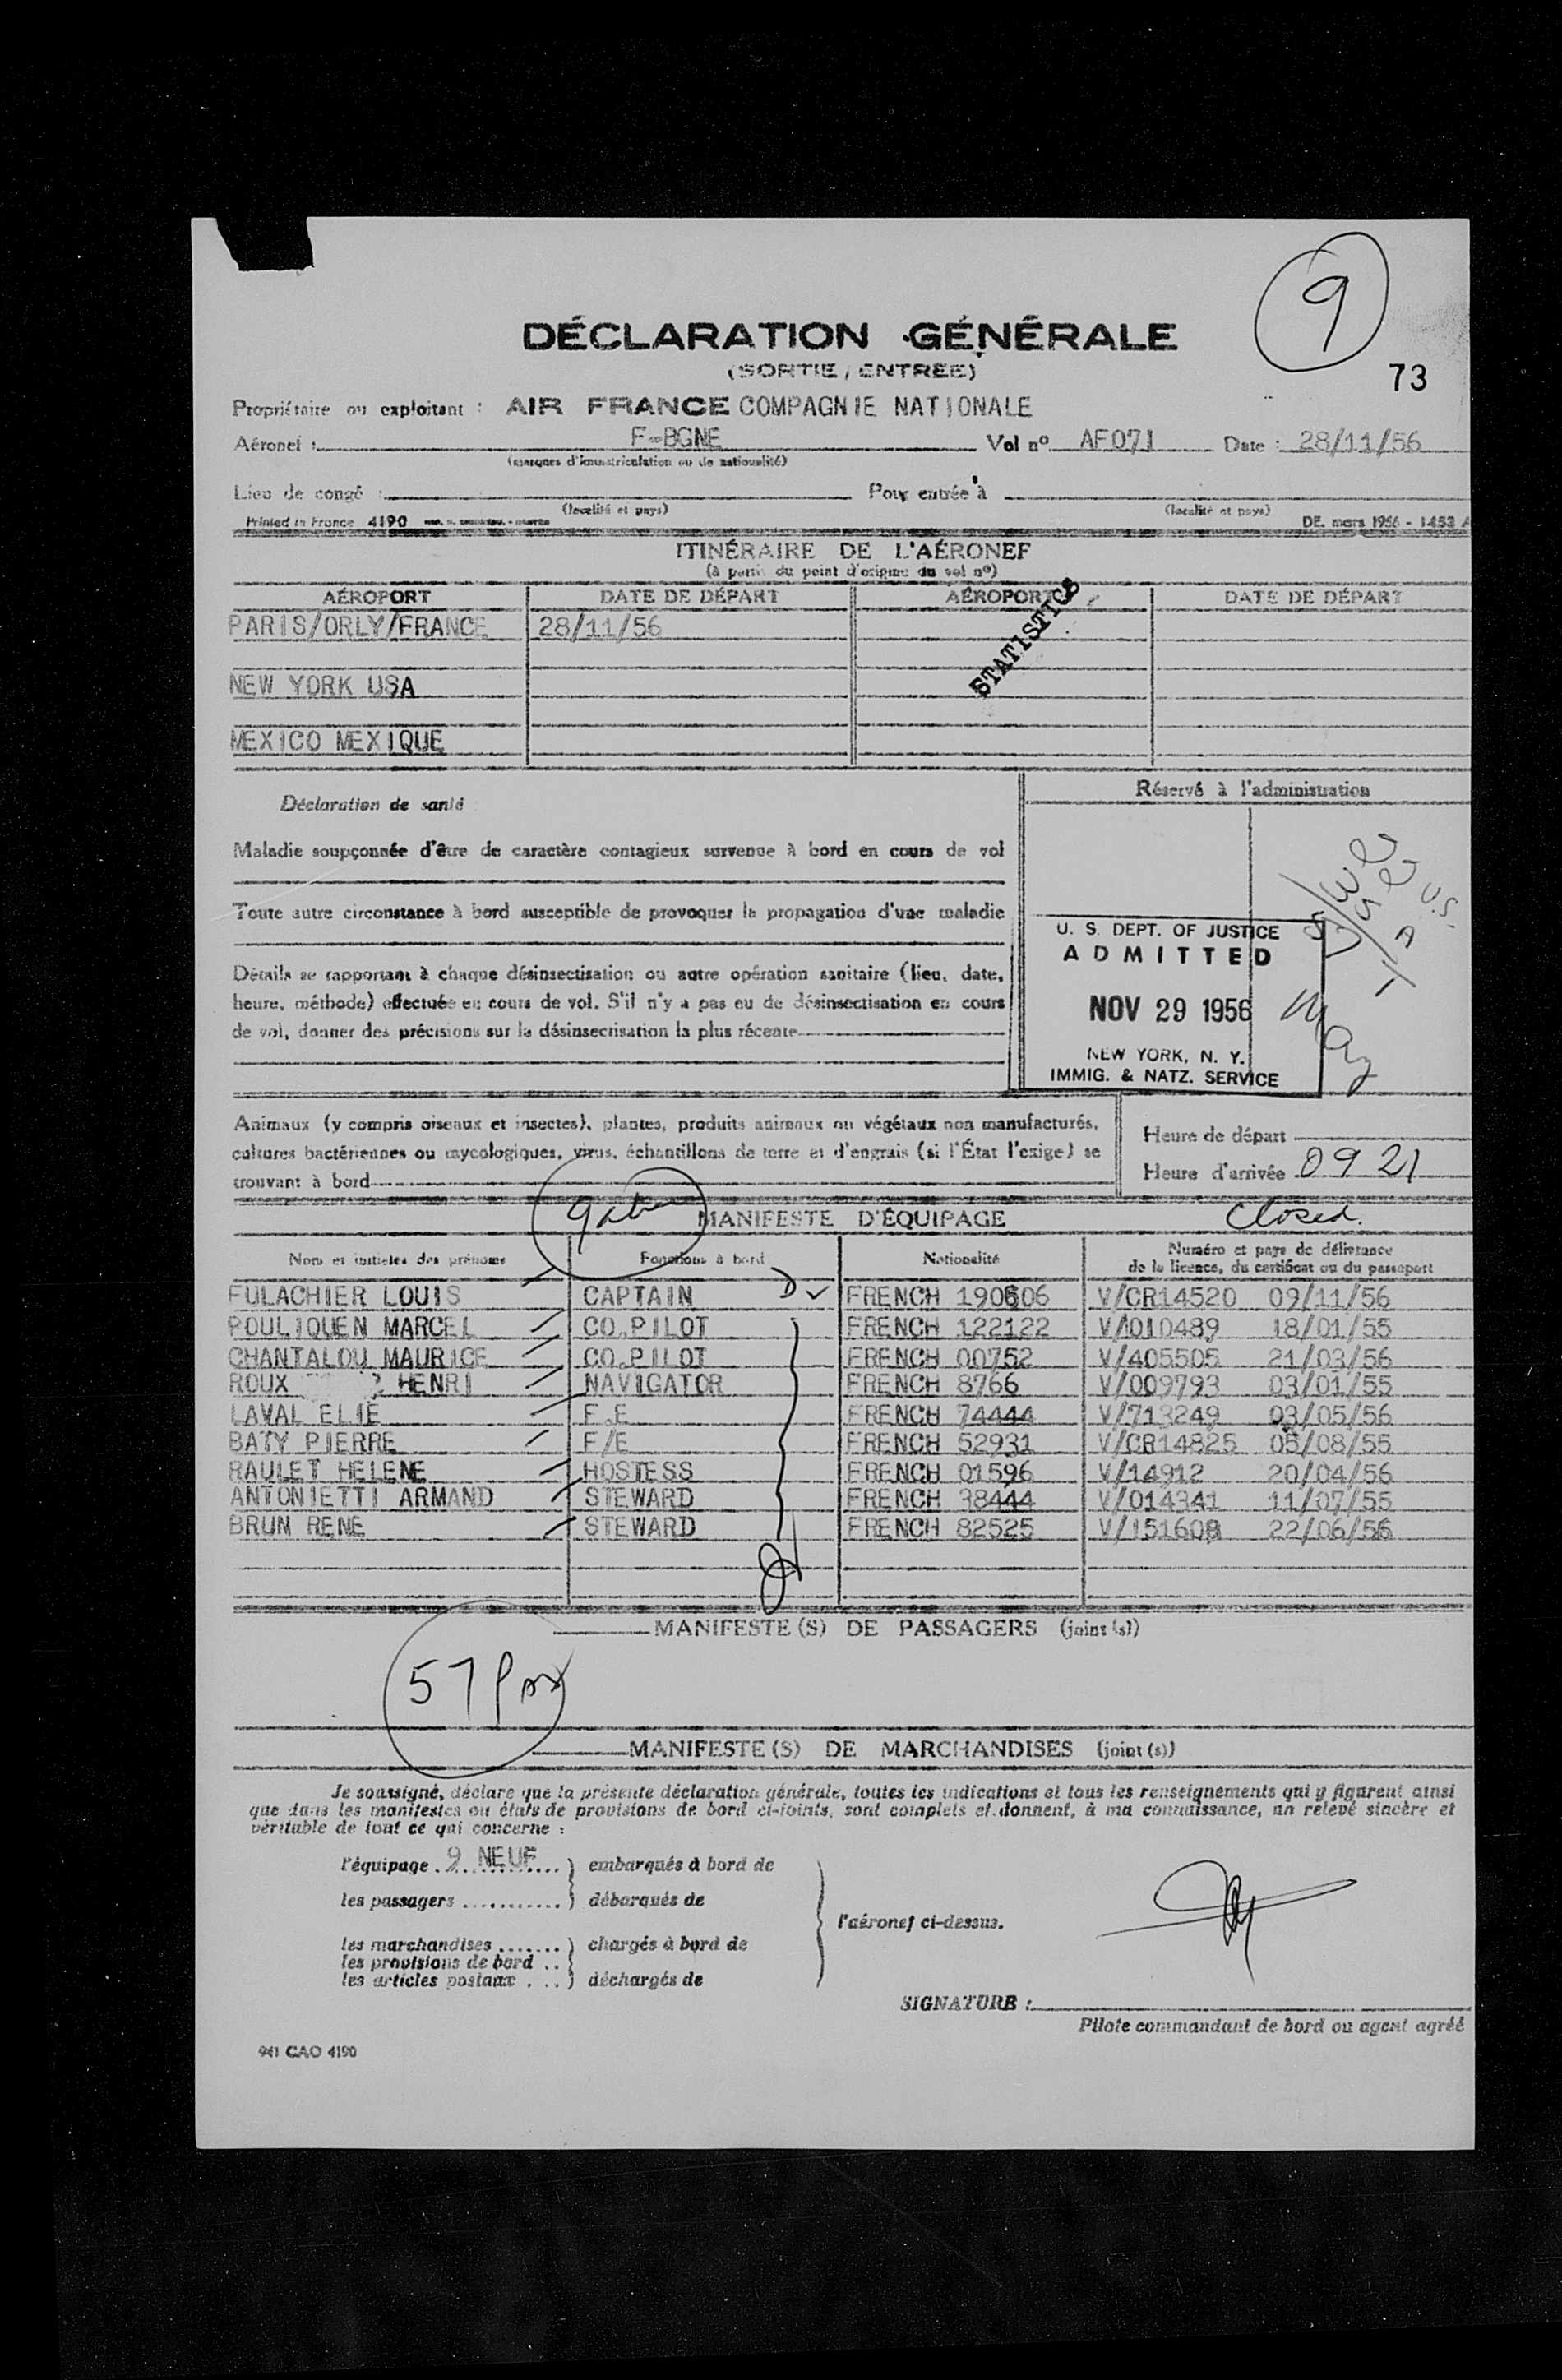 9
DÉCLARATION GÉNÉRALE
(SORTIE / ENTRÉE)
73
Propriétaire ou exploitant : AIR FRANCE COMPAGNIE NATIONALE
Aéronef : F-BGNE Vol nº AF071 Date : 28/11/56
(marques d'immatriculation ou de nationalité)
Lieu de congé : Pour entrée à
(localité et pays) (localité et pays)
Printed in France 4190 DE. mars 1956 - 1453 A
ITINÉRAIRE DE L'AÉRONEF
(à partir du point d'origine du vol nº)
AÉROPORT DATE DE DÉPART AÉROPORT DATE DE DÉPART
PARIS/ORLY/FRANCE 28/11/56
STATISTICS
NEW YORK USA
MEXICO MEXIQUE
Déclaration de santé
Réservé à l'administration
Maladie soupçonnée d'être de caractère contagieux survenue à bord en cours de vol
Toute autre circonstance à bord susceptible de provoquer la propagation d'une maladie
Détails se rapportant à chaque désinsectisation ou autre opération sanitaire (lieu, date,
heure, méthode) effectuée en cours de vol. S'il n'y a pas eu de désinsectisation en cours
de vol, donner des précisions sur la désinsectisation la plus récente
U. S. DEPT. OF JUSTICE
ADMITTED
NOV 29 1956
NEW YORK, N. Y.
IMMIG. & NATZ. SERVICE
U.S.
Animaux (y compris oiseaux et insectes), plantes, produits animaux ou végétaux non manufacturés,
cultures bactériennes ou mycologiques, virus, échantillons de terre et d'engrais (si l'État l'exige) se
trouvant à bord
Heure de départ
Heure d'arrivée 0921
MANIFESTE D'ÉQUIPAGE
Closed.
Nom et initiales des prénoms Fonctions à bord Nationalité Numéro et pays de délivrance
de la licence, du certificat ou du passeport
FULACHIER LOUIS CAPTAIN D ✓ FRENCH 190606 V/CR14520 09/11/56
POULIQUEN MARCEL CO.PILOT FRENCH 122122 V/010489 18/01/55
CHANTALOU MAURICE CO.PILOT FRENCH 00752 V/405505 21/03/56
ROUX HENRI NAVIGATOR FRENCH 8766 V/009793 03/01/55
LAVAL ELIE F.E FRENCH 74444 V/713249 03/05/56
BATY PIERRE F/E FRENCH 52931 V/CR14825 05/08/55
RAULET HELENE HOSTESS FRENCH 01596 V/14912 20/04/56
ANTONIETTI ARMAND STEWARD FRENCH 38444 V/014341 11/07/55
BRUN RENE STEWARD FRENCH 82525 V/151608 22/06/56
MANIFESTE(S) DE PASSAGERS (joint(s))
57 Pax
MANIFESTE(S) DE MARCHANDISES (joint(s))
Je soussigné, déclare que la présente déclaration générale, toutes les indications et tous les renseignements qui y figurent ainsi
que dans les manifestes ou états de provisions de bord ci-joints, sont complets et donnent, à ma connaissance, un relevé sincère et
véritable de tout ce qui concerne :
l'équipage . 9 NEUF ) embarqués à bord de
les passagers ............ ) débarqués de
l'aéronef ci-dessus.
les marchandises ....... ) chargés à bord de
les provisions de bord ..
les articles postaux . .. ) déchargés de
SIGNATURE :
Pilote commandant de bord ou agent agréé
941 CAO 4190